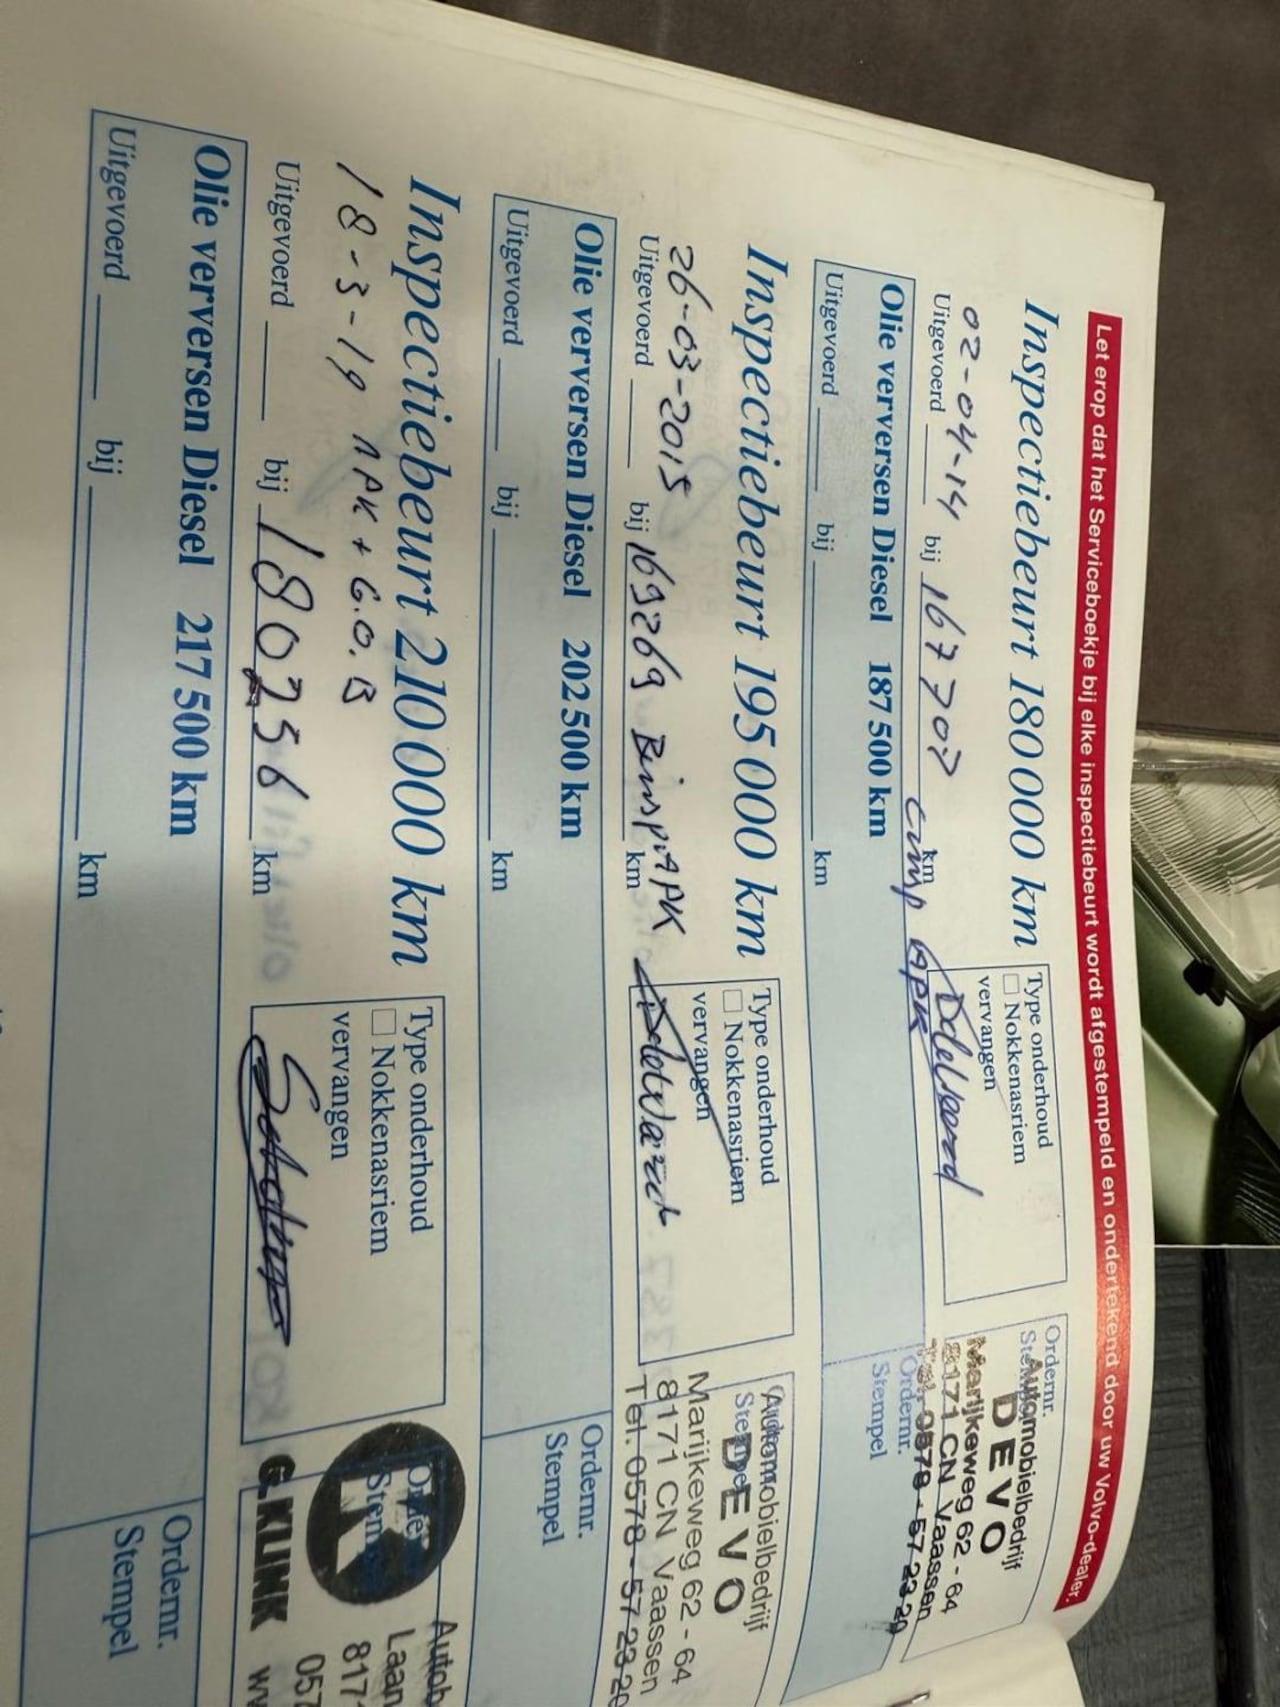 Let erop dat het Serviceboekje bij elke inspectiebeurt wordt afgestempeld en ondertekend door uw Volvo-dealer.
Inspectiebeurt 180 000 km
02-04-14
Uitgevoerd bij 167707 km
APK
Type onderhoud
Nokkenasriem
vervangen
Ordernr.
Stempel
Automobielbedrijf
DEVO
Marijkeweg 62 - 64
8171 CN Vaassen
Tel. 0578 - 57 23 20
Olie verversen Diesel 187 500 km
Uitgevoerd bij km
Ordernr.
Stempel
Inspectiebeurt 195 000 km
26-03-2015
Uitgevoerd bij 169269 APK km
Type onderhoud
Nokkenasriem
vervangen
Stempel
Automobielbedrijf
DEVO
Marijkeweg 62 - 64
8171 CN Vaassen
Tel. 0578 - 57 23 20
Olie verversen Diesel 202 500 km
Uitgevoerd bij km
Ordernr.
Stempel
Inspectiebeurt 210 000 km
18-3-19 APK + G.O.B
Uitgevoerd bij 180256 km
Type onderhoud
Nokkenasriem
vervangen
K
G.KLINK
Autob
Laan
817
057
Olie verversen Diesel 217 500 km
Uitgevoerd bij km
Ordernr.
Stempel